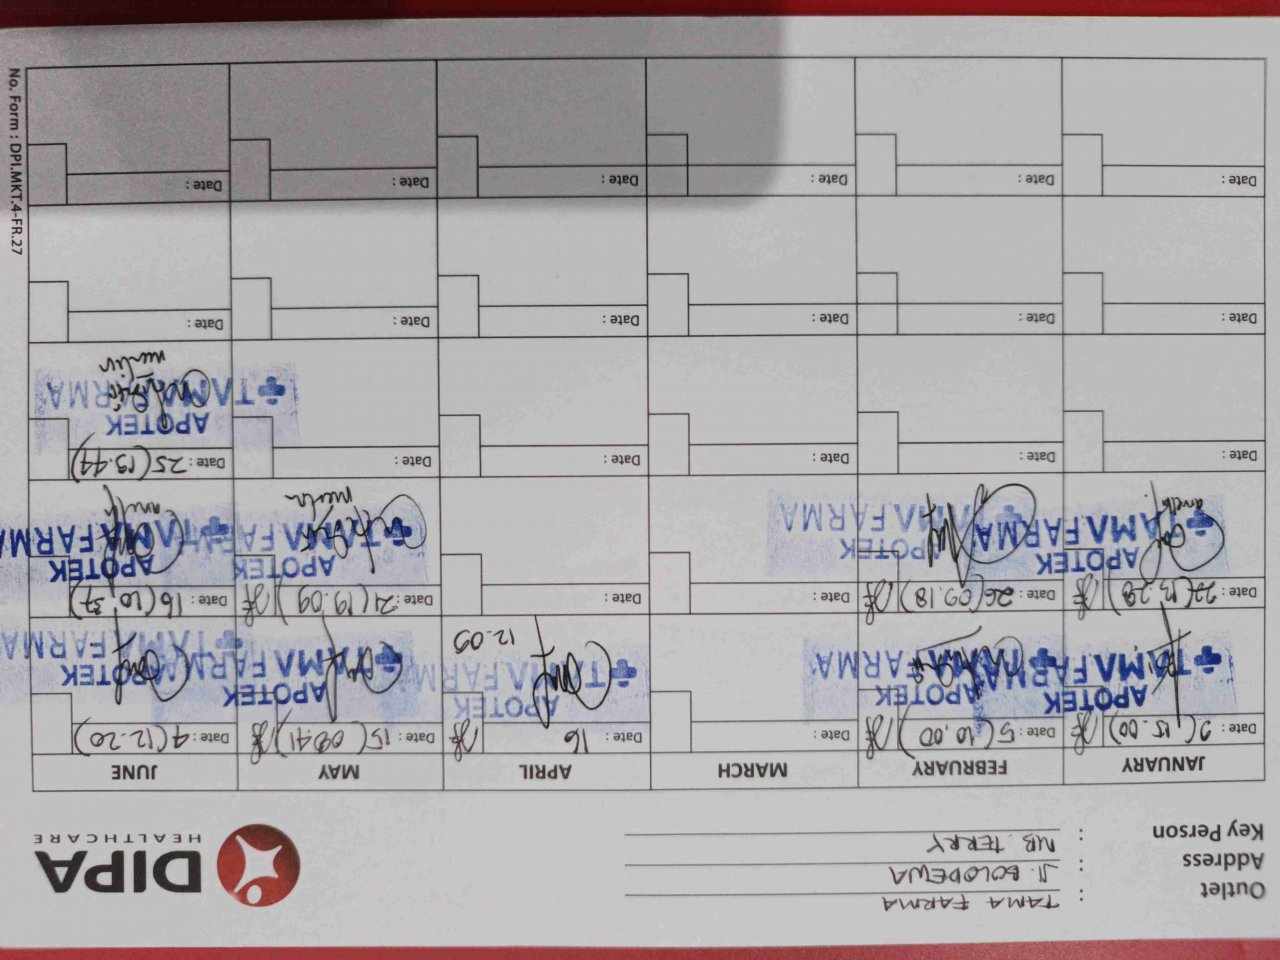 Outlet : TAMA FARMA
Address : Jl. BOLODEWA
Key Person : MB. TERRY
DIPA
HEALTHCARE
JANUARY FEBRUARY MARCH APRIL MAY JUNE
Date : 9 (15.00) Date : 5 (10.00) Date : Date : 16 Date : 15 (08.41) Date : 4 (12.20)
12.09
APOTEK APOTEK APOTEK APOTEK APOTEK
TAMA FARMA TAMA FARMA TAMA FARMA TAMA FARMA TAMA FARMA
Date : 22 (13.28) Date : 26 (09.18) Date : Date : Date : 21 (19.09) Date : 16 (10.37)
APOTEK APOTEK APOTEK APOTEK
TAMA FARMA TAMA FARMA TAMA FARMA TAMA FARMA
Date : Date : Date : Date : Date : Date : 25 (19.44)
APOTEK
TAMA FARMA
Date : Date : Date : Date : Date : Date :
Date : Date : Date : Date : Date : Date :
No. Form : DPI.MKT.4-FR.27